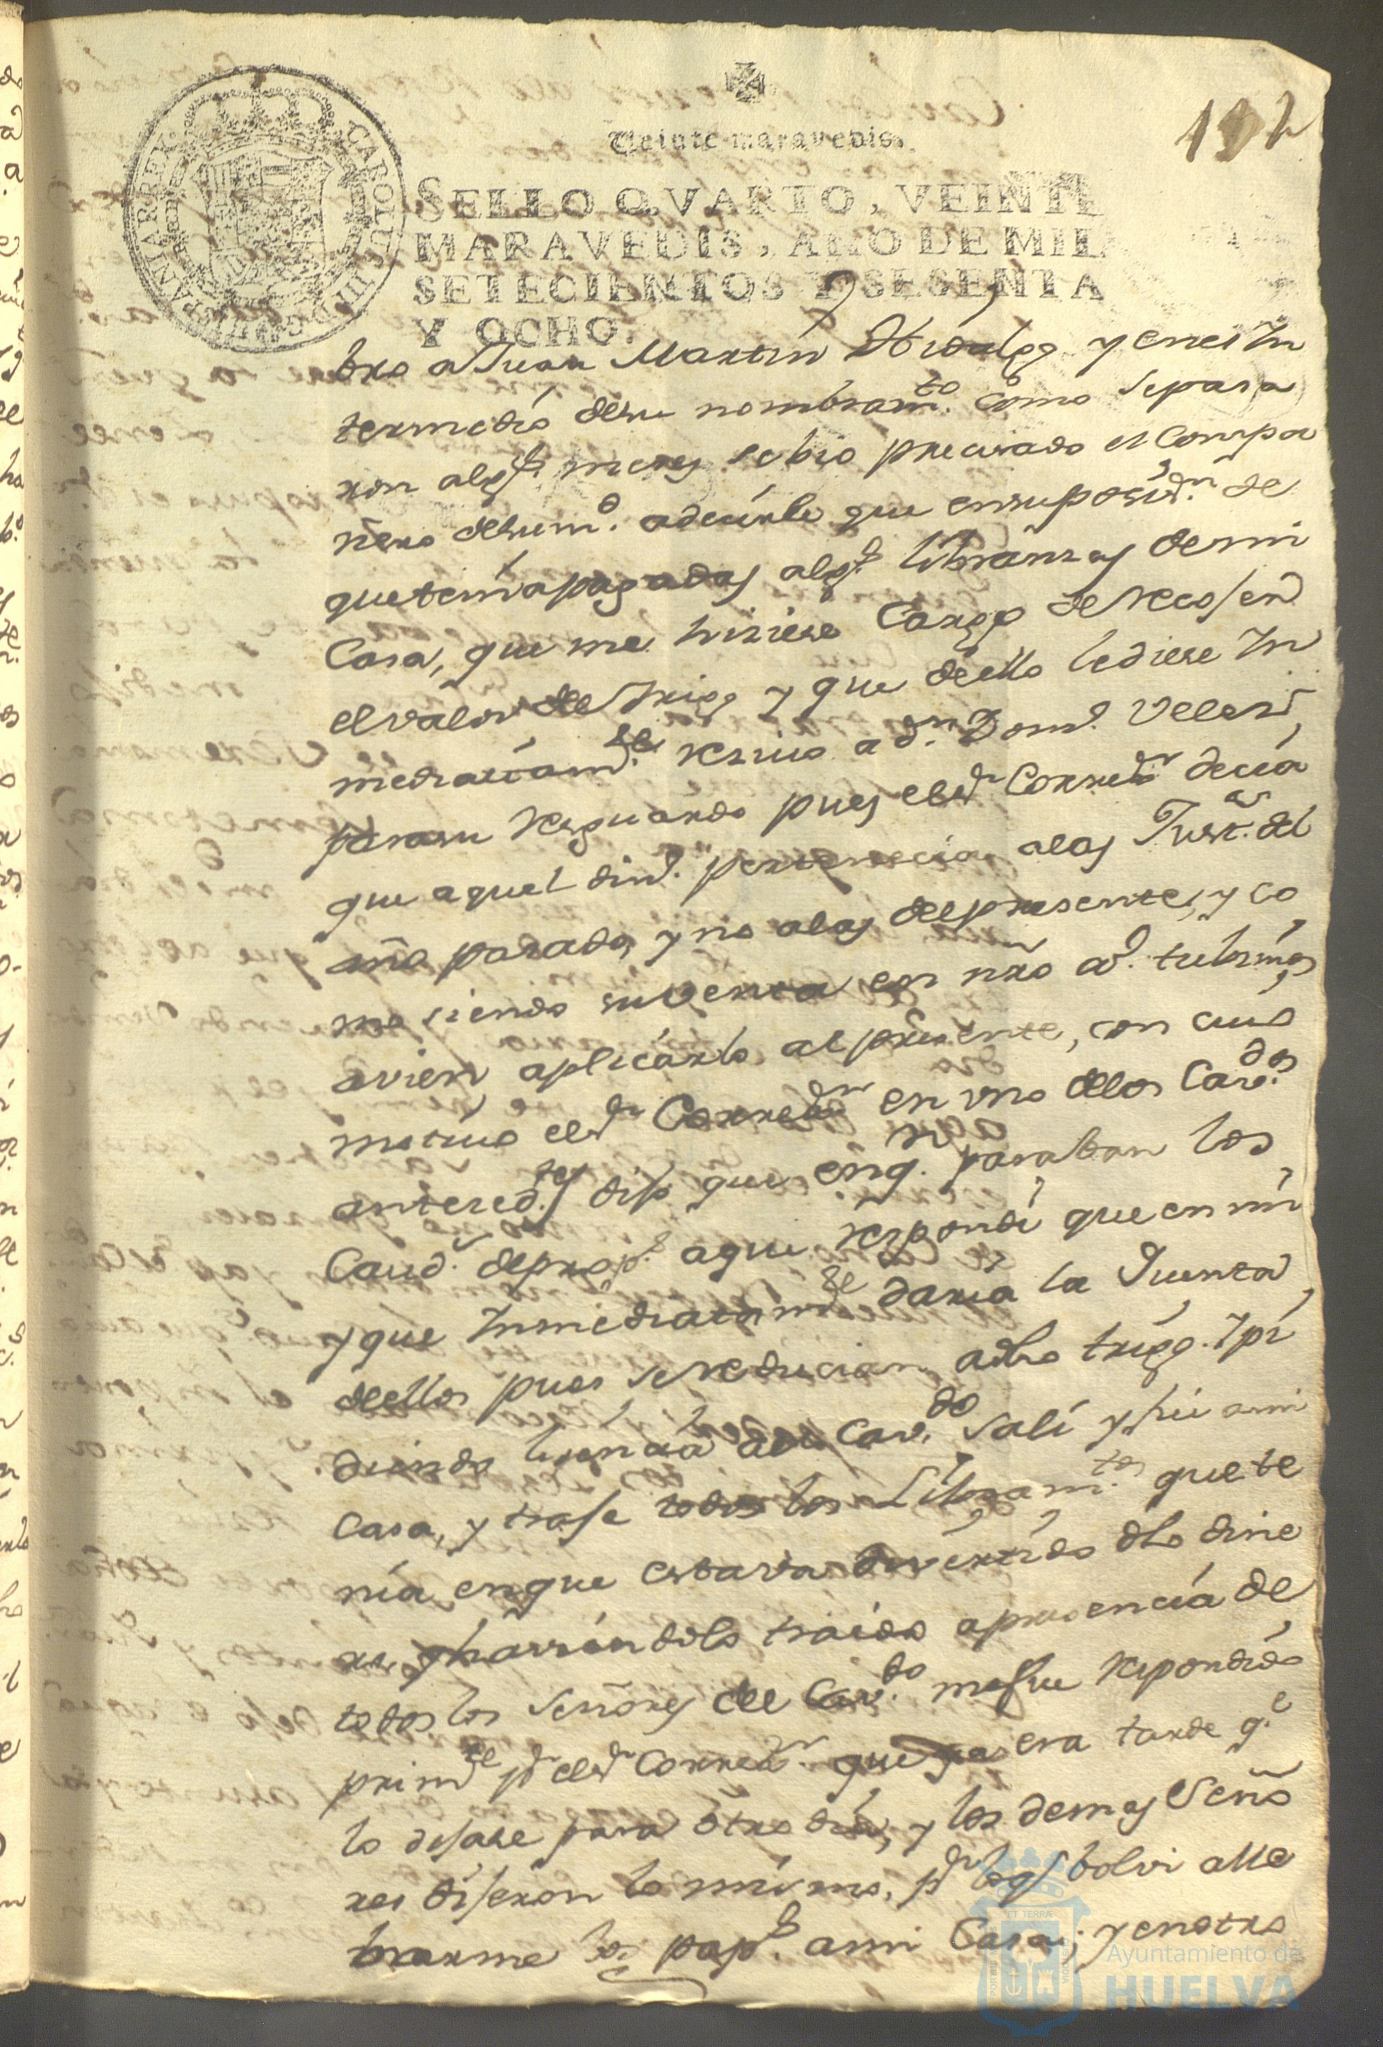 Veinte maravedis.
192
CAROLUS III D G HISPANIAR REX
SELLO QVARTO, VEINTE
MARAVEDIS, AÑO DE MIL
SETECIENTOS Y SESENTA
Y OCHO.
bro a Juan Martin Hidalgo y en el In
termedio desu nombramto. como sepasa
ron algs. meses se bio precisado el Compa
ñero desumd. adecirle que ensuposisn. de
quetenia pagadas algs. libranzas de mi
Casa, que me hiziese Cargo de recojer
el valor del trigo y que deello lediese In
mediatamte. resivo a dn. Domo. Velez,
parasu resguardo pues elsr. Corredr. decia
que aquel dino. pertenecia alas Justas. del
año pasado, y no alas delpresente, y co
mo siendo suventa en nro ao. tubimos
avien, aplicarlo al presente, con cuio
motivo elsr. Corredr. en vno delos Cavdos.
antecedtes. dijo que enqn. paraban los
Caudes. deprops. aque respondi que en mi
y que Inmediatamte. daria la Quenta
deellos pues sereducian adho trigo. Y pi
diendo lisencia al Cavdo. Sali y fui ami
Casa, y traje todos los Libramtos. quete
nia enque estava divertido dho dine
ro, y haviendolo traido apresencia de
todos los Señores del Cavdo. mefue respondido
primte. pr. elsr. Corredr. que ya era tarde qe.
lo dejase para otro dia, y los demas Seño
res dijeron lo mismo, pr. loqe. bolvi alle
barme los paps. ami Casa; y enotro
Ayuntamiento de
HUELVA